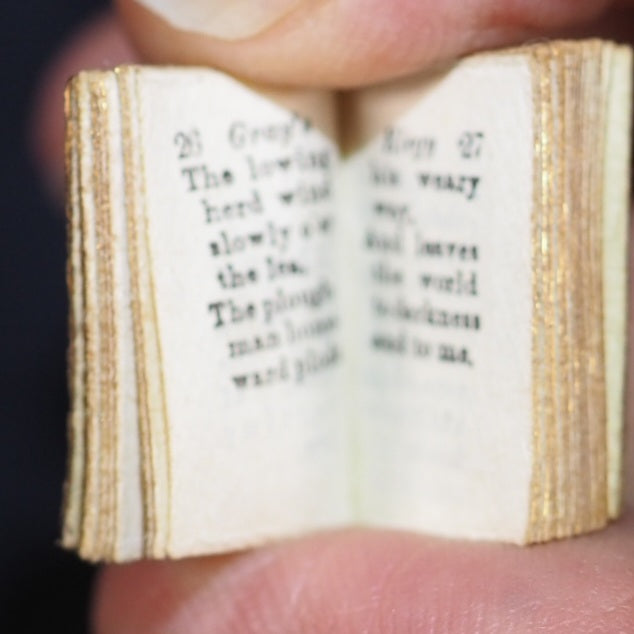 26 Gray's
The lowing
herd wind
slowly o'er
the lea.
The plough-
man home-
ward plods
Elegy 27
his weary
way,
And leaves
the world
to darkness
and to me.